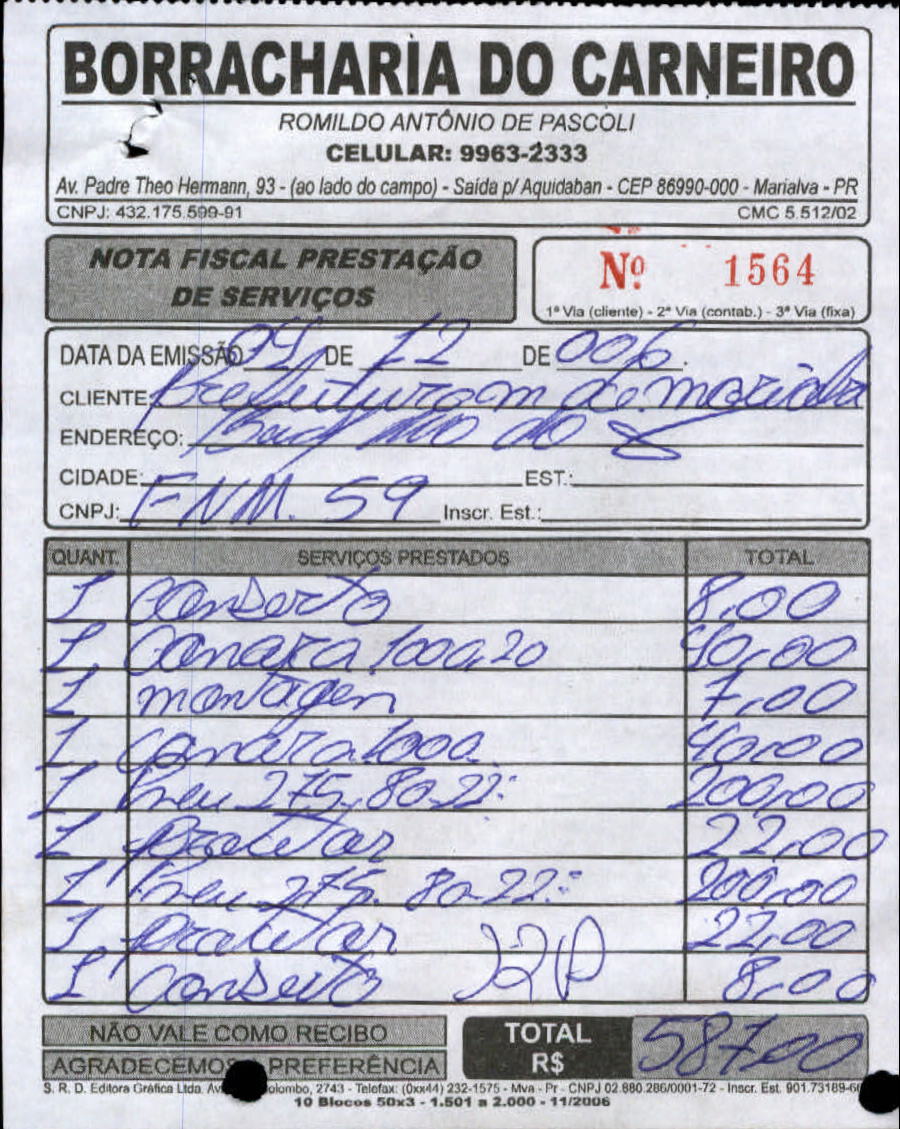 BORRACHARIA DO CARNEIRO
ROMILDO ANTÔNIO DE PASCOLI
CELULAR: 9963-2333
Av. Padre Theo Hermann, 93 - (ao lado do campo) - Saída p/ Aquidaban - CEP 86990-000 - Marialva - PR
CNPJ: 432.175.599-91 CMC 5.512/02
NOTA FISCAL PRESTAÇÃO
DE SERVIÇOS
Nº 1564
1ª Via (cliente) - 2ª Via (contab.) - 3ª Via (fixa)
DATA DA EMISSÃO DE 12 DE 006
CLIENTE: Prefeitura m de marialva
ENDEREÇO:
CIDADE: EST.:
CNPJ: FNM. 59 Inscr. Est.:
QUANT. SERVIÇOS PRESTADOS TOTAL
1 Conserto 8,00
1 Camara 1000,20 40,00
1 montagen 7,00
1 Camara 1000 40,00
1 Pneu 275.80-22: 200,00
1 protetor 22,00
1 Pneu 275. 80-22: 200,00
1 protetor 22,00
1 Conserto 8,00
NÃO VALE COMO RECIBO
AGRADECEMOS PREFERÊNCIA
TOTAL
R$ 587,00
S. R. D. Editora Gráfica Ltda. Av. olombo, 2743 - Telefax: (0xx44) 232-1575 - Mva - Pr - CNPJ 02.880.286/0001-72 - Inscr. Est. 901.73189-6
10 Blocos 50x3 - 1.501 a 2.000 - 11/2006